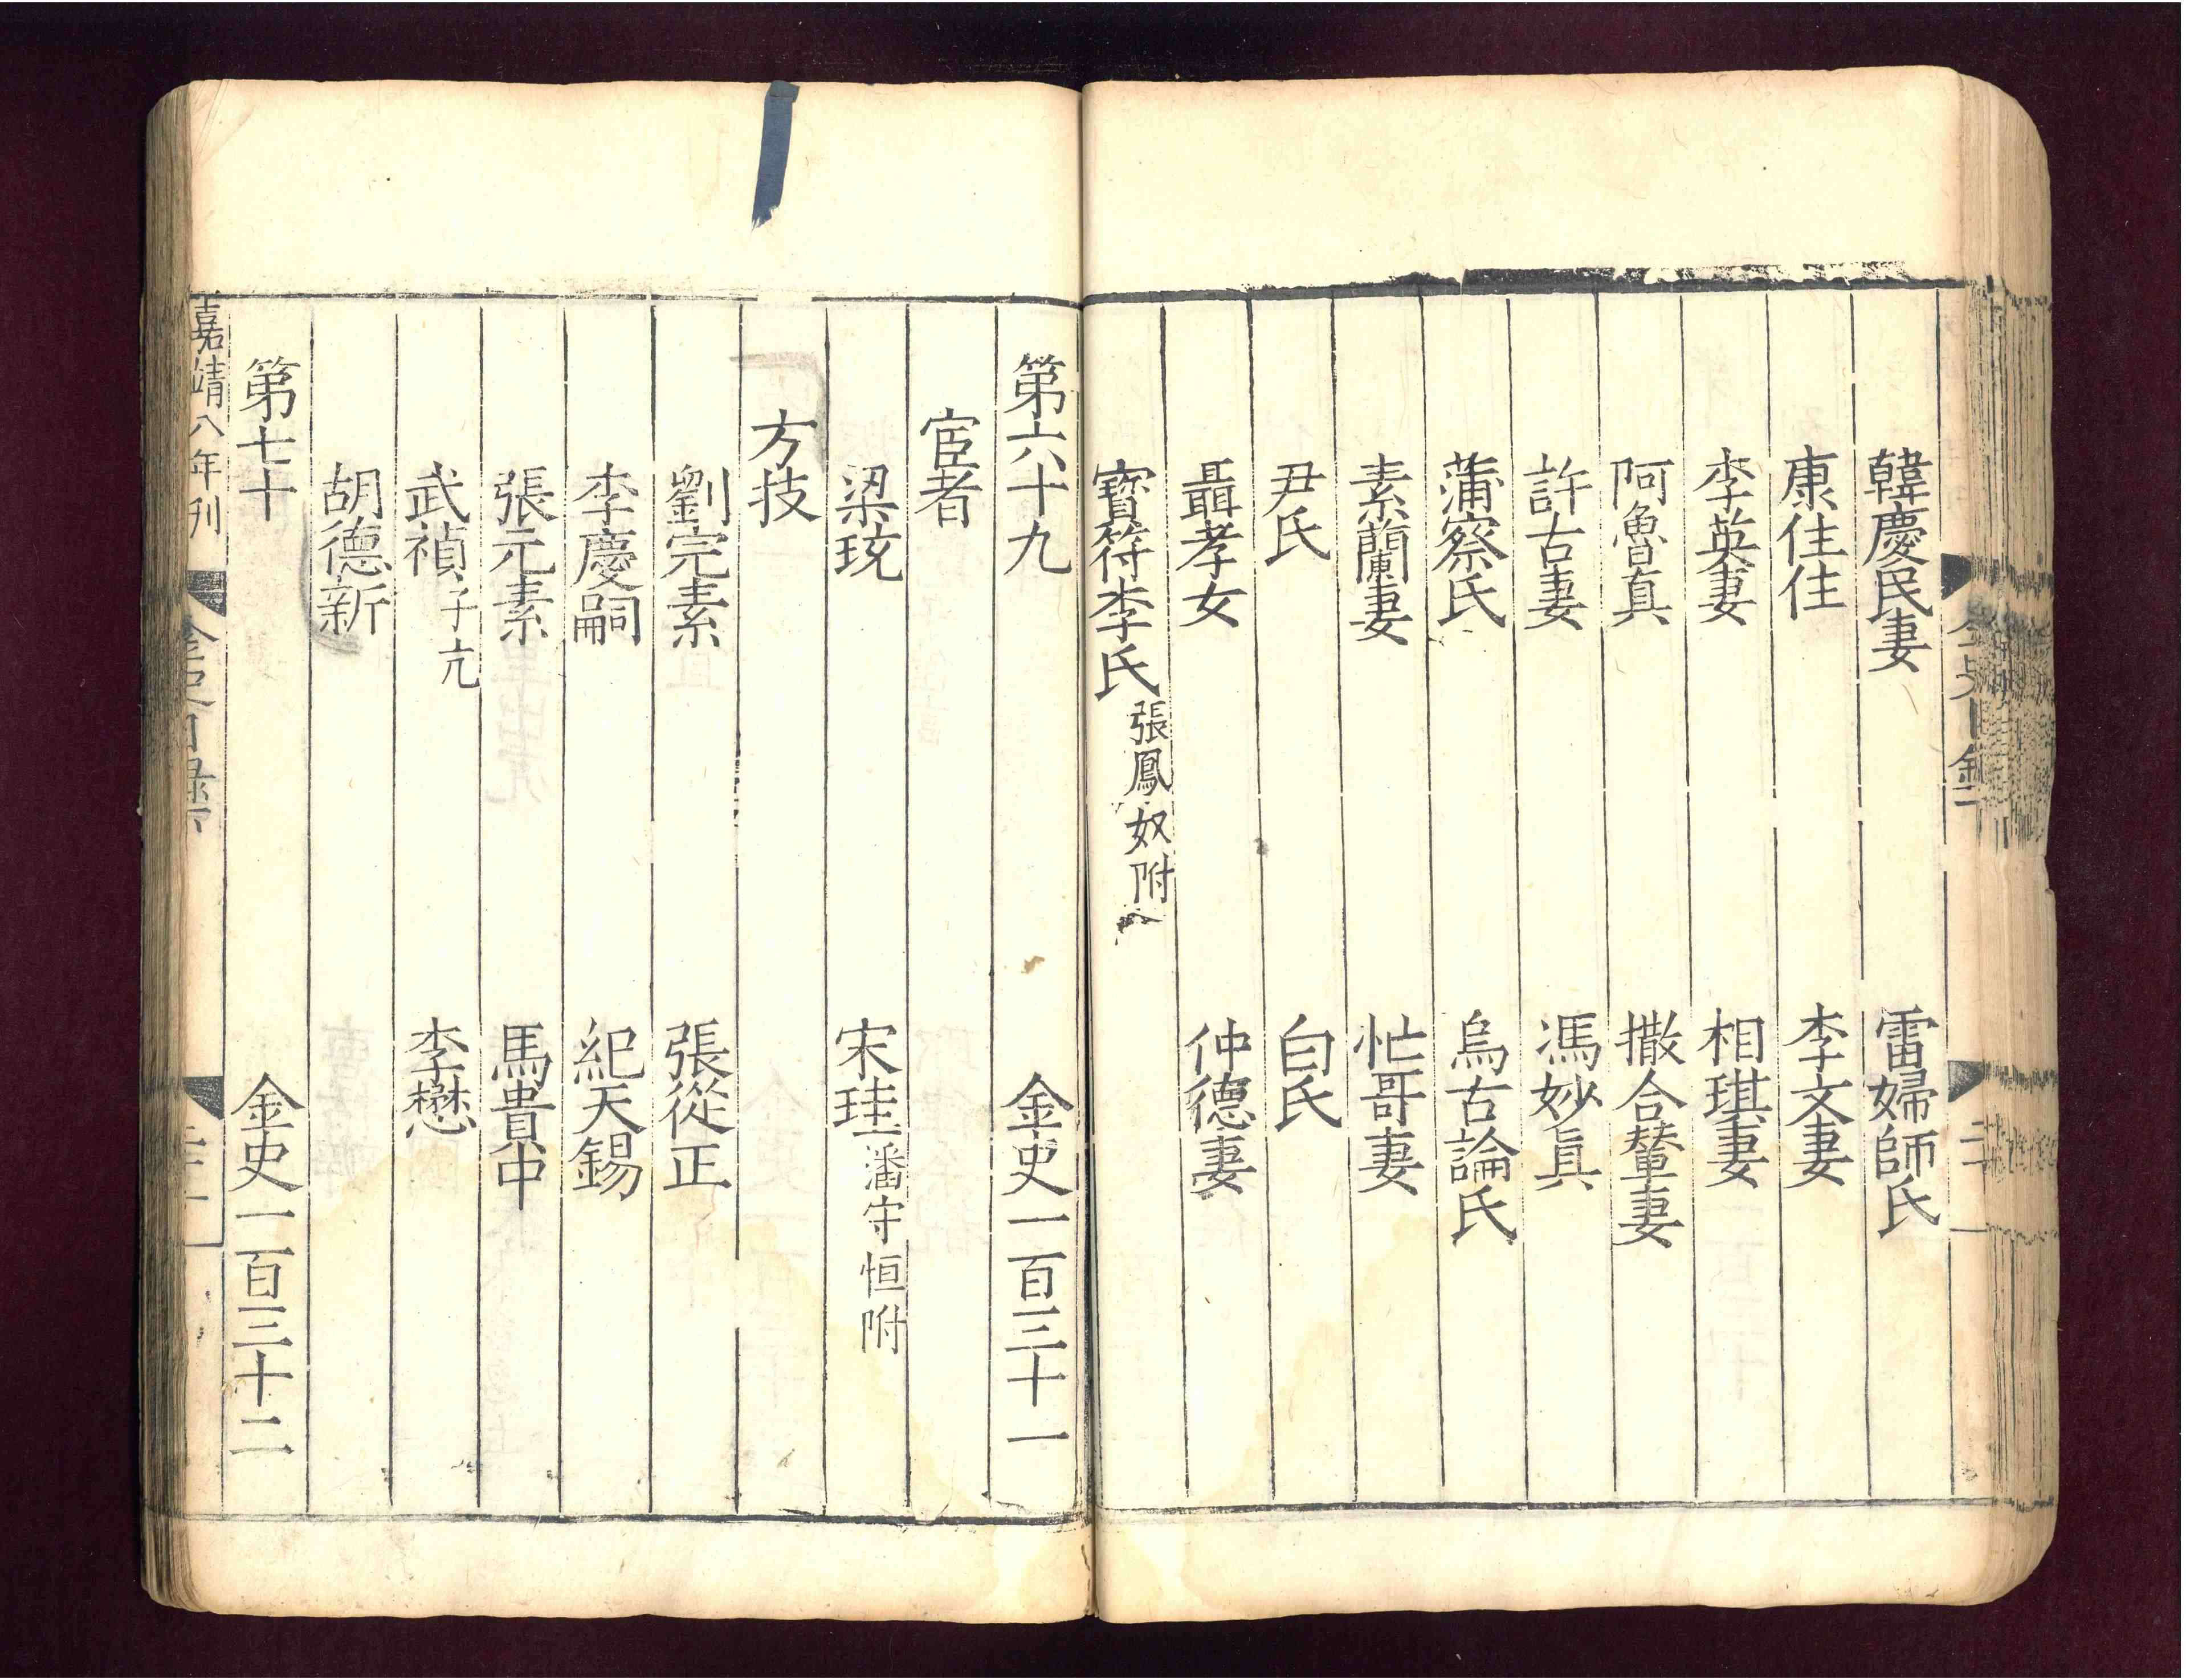 韓慶民妻 雷婦師氏
康住住 李文妻
李英妻 相琪妻
阿魯真 撒合輦妻
許古妻 馮妙眞
蒲察氏 烏古論氏
素蘭妻 忙哥妻
尹氏 白氏
聶孝女 仲德妻
寳符李氏 張鳳奴附
第六十九 金史一百三十一
宦者
梁珫 宋珪 潘守恒附
方技
劉完素 張從正
李慶嗣 紀天錫
張元素 馬貴中
武禎 子亢 李懋
胡德新
第七十 金史一百三十二
嘉靖八年刊 金史目錄下